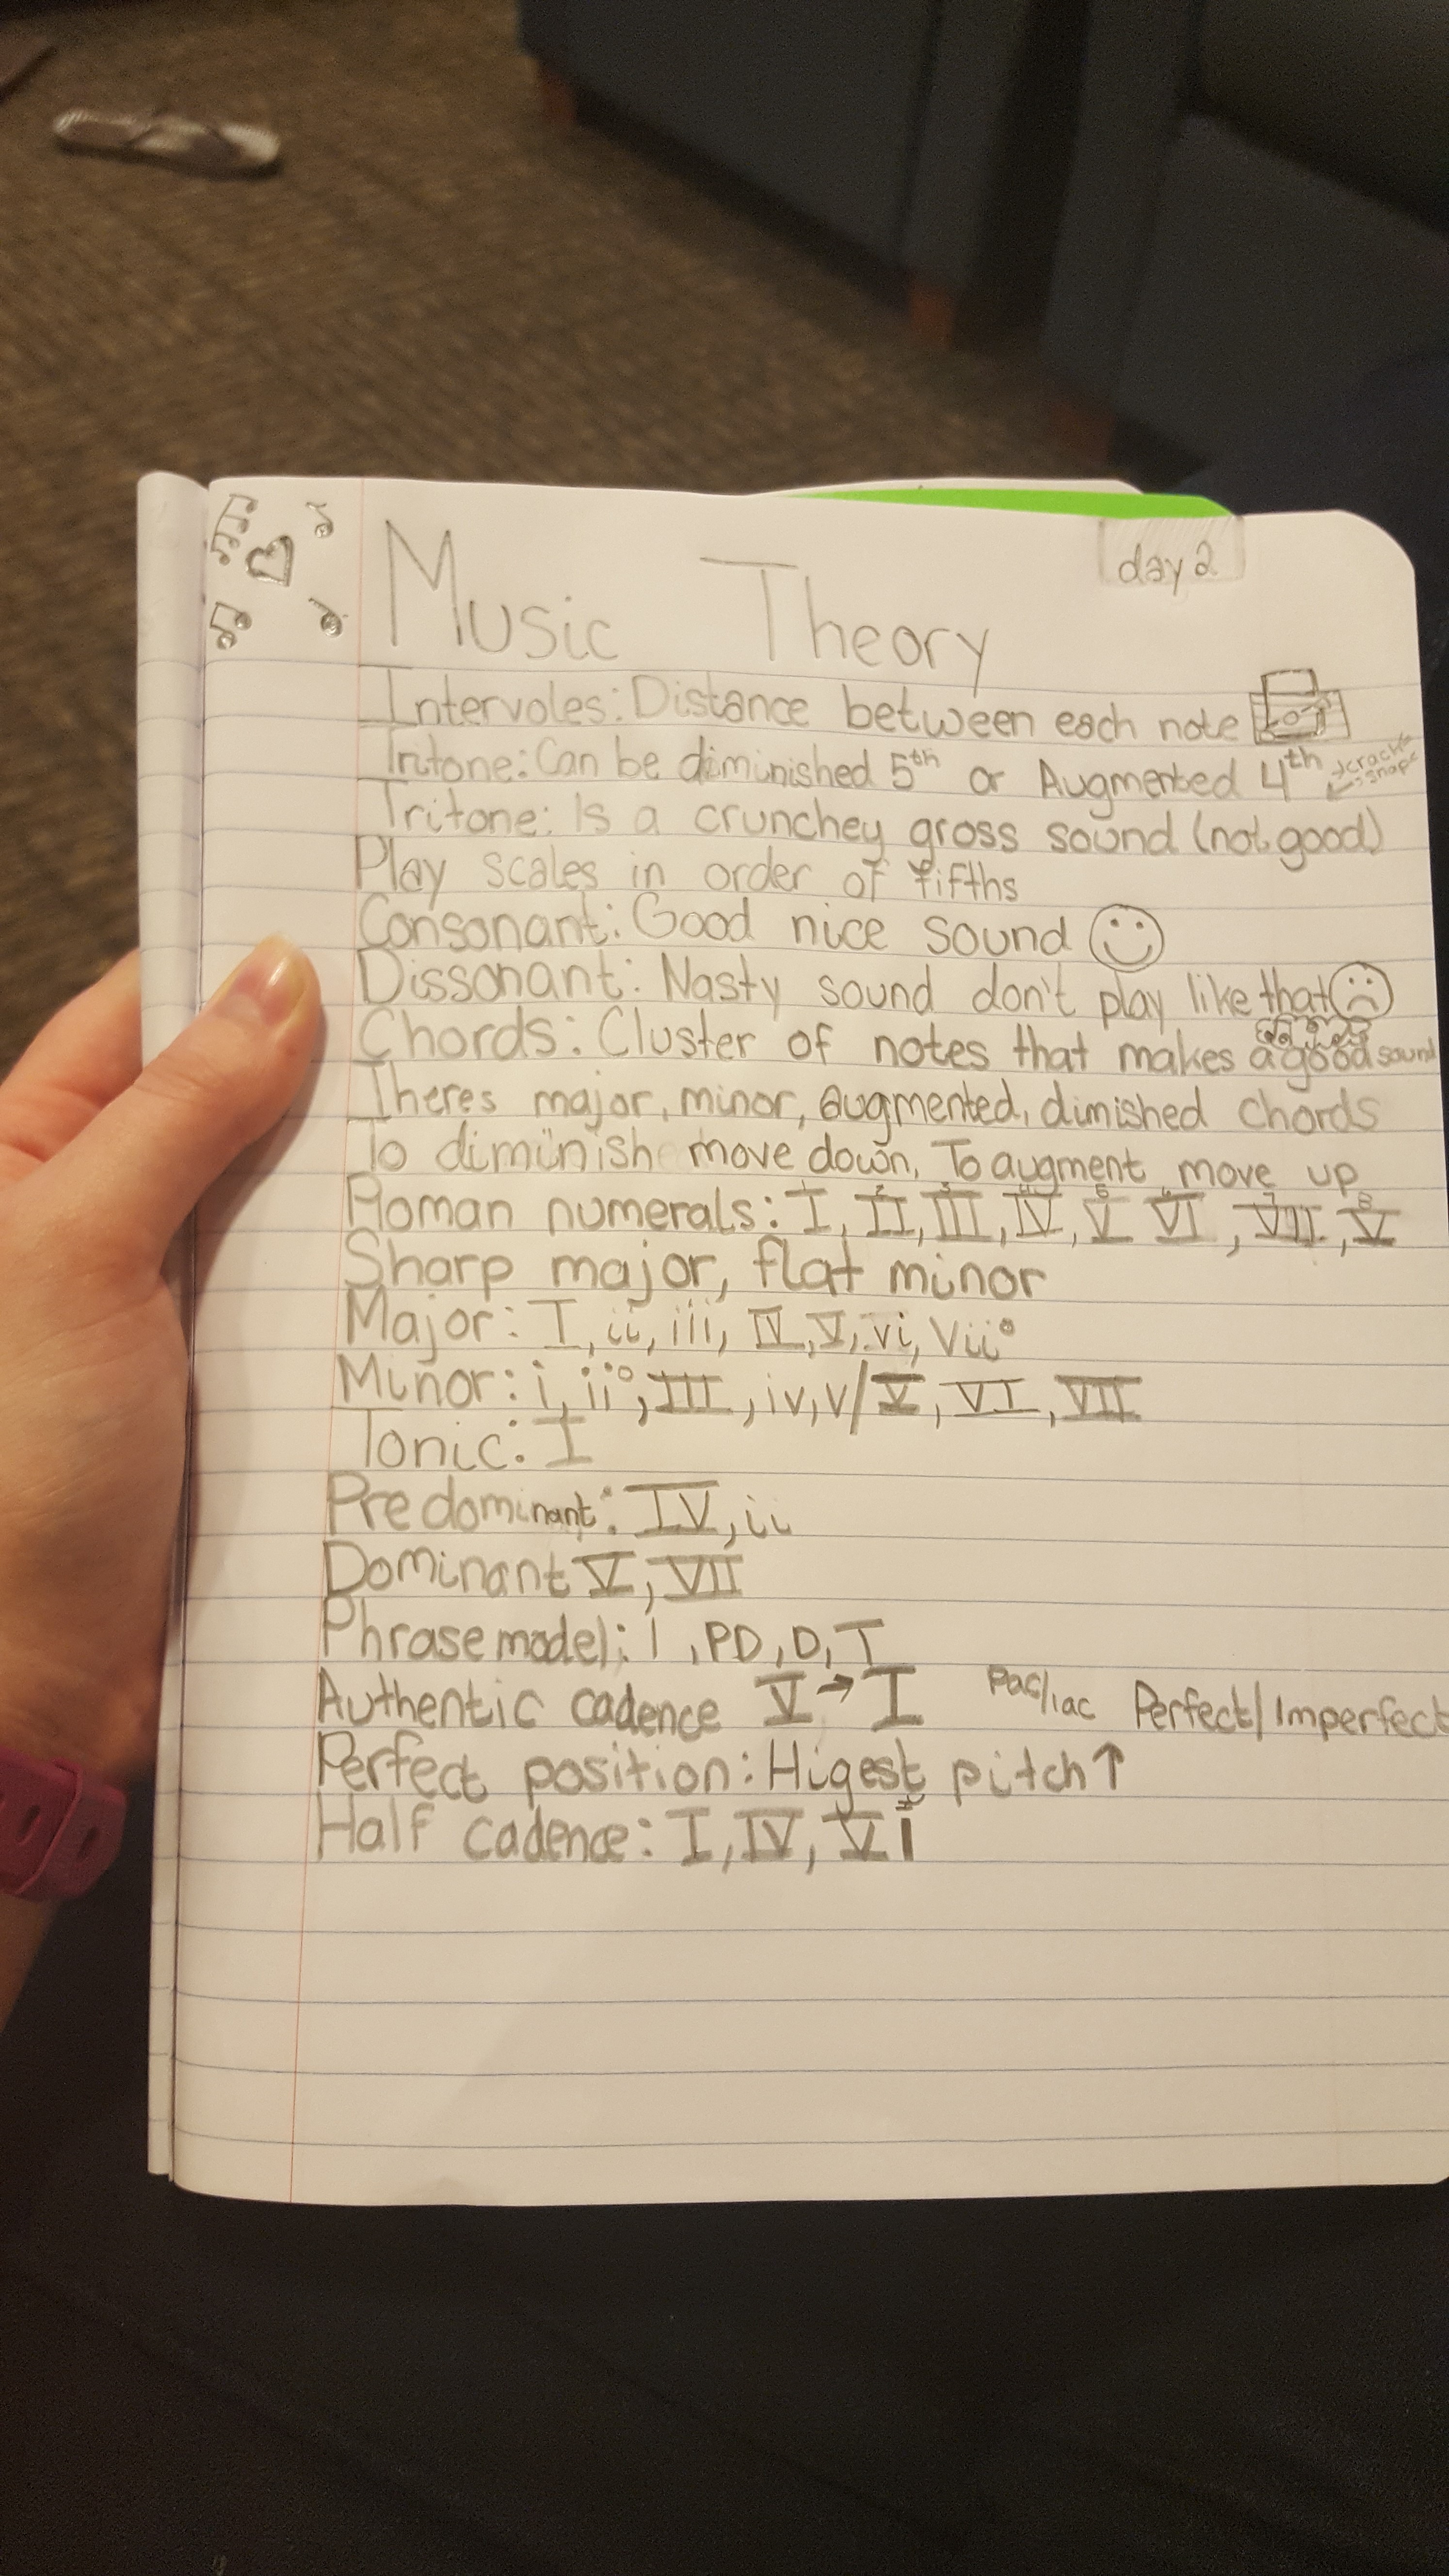 day 2
Music Theory
Intervoles: Distance between each note
Tritone: Can be diminished 5th or Augmented 4th
crackle
snap
Tritone: Is a crunchey gross sound (not good)
Play scales in order of fifths
Consonant: Good nice sound
Dissonant: Nasty sound don't play like that
Chords: Cluster of notes that makes a good sound
Theres major, minor, augmented, dimished chords
To diminish move down, To augment move up
Roman numerals: I, II, III, IV, V VI, VII, V
Sharp major, flat minor
Major: I, ii, iii, IV, V, vi, Vii°
Minor: i, ii°, III, iv, v/V, VI, VII
Tonic: I
Predominant: IV, ii
Dominant V, VII
Phrase model: I, PD, D, T
Authentic cadence V → I Pac/iac Perfect/Imperfect
Perfect position: Higest pitch ↑
Half cadence: I, IV, Vi